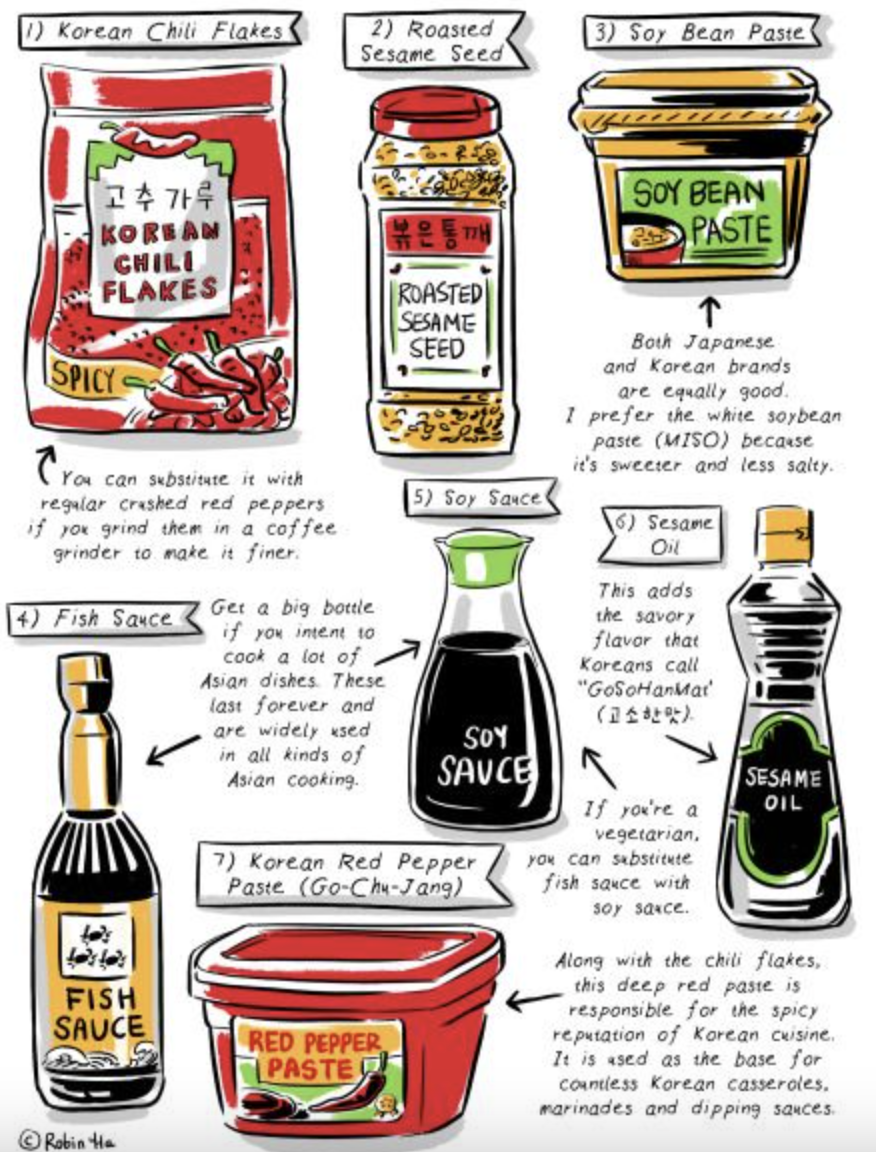 1) Korean Chili Flakes
고추가루
KOREAN
CHILI
FLAKES
SPICY
You can substitute it with
regular crushed red peppers
if you grind them in a coffee
grinder to make it finer.
2) Roasted
Sesame Seed
볶은통깨
ROASTED
SESAME
SEED
3) Soy Bean Paste
SOY BEAN
PASTE
Both Japanese
and Korean brands
are equally good.
I prefer the white soybean
paste (MISO) because
it's sweeter and less salty.
4) Fish Sauce
FISH
SAUCE
Get a big bottle
if you intent to
cook a lot of
Asian dishes. These
last forever and
are widely used
in all kinds of
Asian cooking.
5) Soy Sauce
SOY
SAUCE
If you're a
vegetarian,
you can substitute
fish sauce with
soy sauce.
6) Sesame
Oil
This adds
the savory
flavor that
Koreans call
"GoSoHanMat'
(고소한맛).
SESAME
OIL
7) Korean Red Pepper
Paste (Go-Chu-Jang)
RED PEPPER
PASTE
Along with the chili flakes,
this deep red paste is
responsible for the spicy
reputation of Korean cuisine.
It is used as the base for
countless Korean casseroles,
marinades and dipping sauces.
© Robin Ha